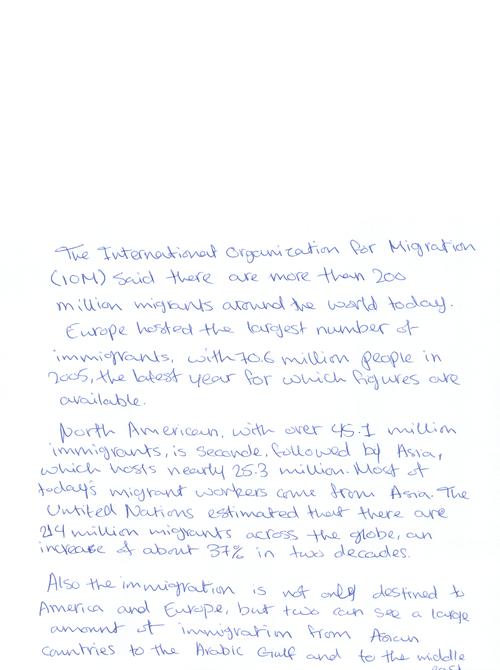 The International Organization for Migration
(IOM) said there are more than 200
million migrants around the world today.
Europe hosted the largest number of
immigrants, with 70.6 million people in
2005, the latest year for which figures are
available.
North American, with over 45.1 million
immigrants, is seconde, followed by Asia,
which hosts nearly 25.3 million. Most of
today's migrant workers come from Asia. The
Untited Nations estimated that there are
214 million migrants across the globe, an
increase of about 37% in two decades.
Also the immigration is not only destined to
America and Europe, but two can see a large
amount of immigration from Asian
countries to the Arabic Gulf and to the middle
east